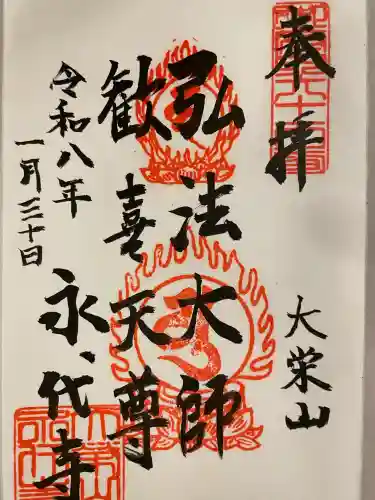 奉拝
大栄山
弘法大師
歓喜天尊
令和八年
一月三十日
永代寺